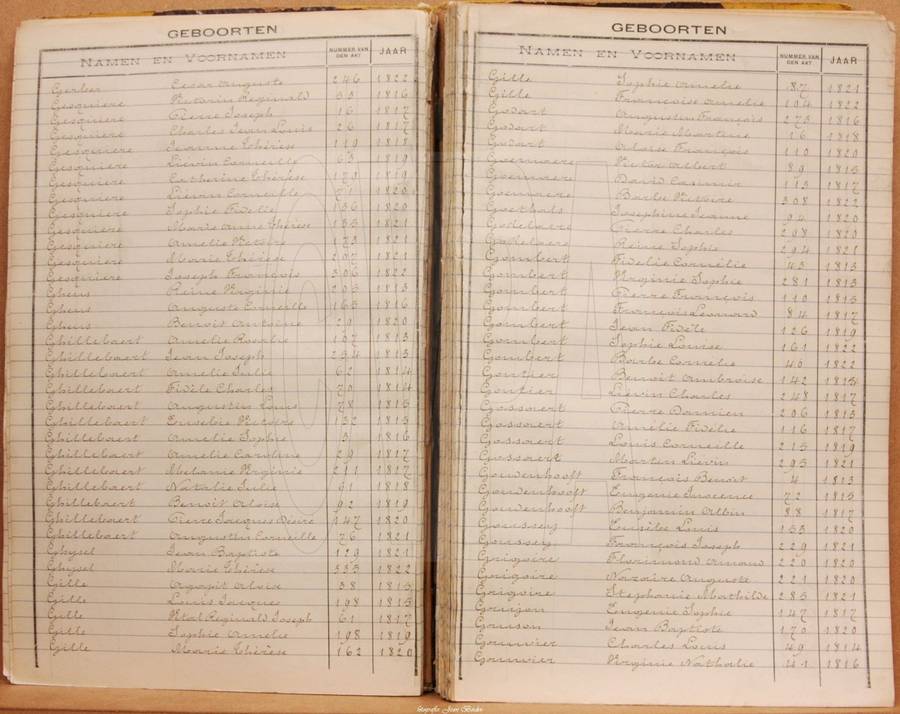 GEBOORTEN
NAMEN EN VOORNAMEN NUMMER VAN DEN AKT JAAR
Gerber Cesar Auguste 246 1822
Gesquiere Victorin Reginald 33 1816
Gesquiere Pierre Joseph 16 1817
Gesquiere Charles Jean Louis 26 1817
Gesquiere Jeanne Thérèse 119 1818
Gesquiere Lievin Corneille 63 1819
Gesquiere Catherine Thérèse 1819
Gesquiere Lievin Corneille 71 1820
Gesquiere Sophie Fidélie 136 1820
Gesquiere Marie Anne Thérèse 133 1821
Gesquiere Amelie Victoire 173 1821
Gesquiere Marie Thérèse 207 1821
Gesquiere Joseph François 306 1822
Gheus Reine Virginie 203 1813
Gheus Auguste Corneille 163 1816
Gheus Benoit Antoine 29 1820
Ghillebaert Amelie Rosalie 107 1813
Ghillebaert Jean Joseph 254 1813
Ghillebaert Amelie Julie 62 1814
Ghillebaert Fidèle Charles 70 1814
Ghillebaert Augustin Louis 78 1815
Ghillebaert Eusebie Victoire 132 1815
Ghillebaert Amelie Sophie 3 1816
Ghillebaert Amelie Caroline 29 1817
Ghillebaert Melanie Virginie 211 1817
Ghillebaert Natalie Julie 91 1818
Ghillebaert Benoit Aloise 92 1819
Ghillebaert Pierre Jacques Désiré 147 1820
Ghillebaert Augustin Corneille 76 1821
Ghysel Jean Baptiste 129 1821
Ghysel Marie Thérèse 333 1822
Gille Agapit Aloise 38 1813
Gille Louis Jacques 198 1815
Gille Vital Reginald Joseph 61 1817
Gille Sophie Amelie 198 1819
Gille Marie Thérèse 162 1820
GEBOORTEN
NAMEN EN VOORNAMEN NUMMER VAN DEN AKT JAAR
Gille Sophie Amelie 87 1821
Gille Françoise Amelie 104 1822
Godart Augustin François 273 1816
Godart Marie Martine 16 1818
Godart Aloise François 110 1820
Goemaere Victor Albert 89 1813
Goemaere David Casimir 113 1817
Goemaere Barbe Victoire 308 1822
Goethals Josephine Jeanne 94 1820
Pierre Charles 208 1820
Reine Sophie 294 1821
Gombert Fidelie Cornélie 43 1813
Gombert Virginie Sophie 281 1813
Gombert Pierre François 110 1815
Gombert François Leonard 84 1817
Gombert Jean Fidèle 126 1819
Gombert Sophie Louise 161 1822
Gombert Barbe Cornelie 40 1822
Gontier Benoit Ambroise 142
Gontier Lievin Charles 248 1817
Gossaert Pierre Damien 206 1813
Gossaert Amélie Fidélie 116 1817
Gossaert Louis Corneille 213 1819
Gossaert Martin Lievin 293 1821
Goudenhooft François Benoit 4 1813
Goudenhooft Eugenie Inocence 72 1815
Goudenhooft Benjamin Albin 88 1817
Goussey Louis 133 1820
Goussey François Joseph 229 1821
Grigoire Florimond Armand 220 1820
Grigoire Nazaire Auguste 221 1820
Grigoire Stephanie Mathilde 283 1821
Eugenie Sophie 147 1817
Jean Baptiste 170 1820
Charles Louis 49 1814
Virginie Nathalie 41 1816